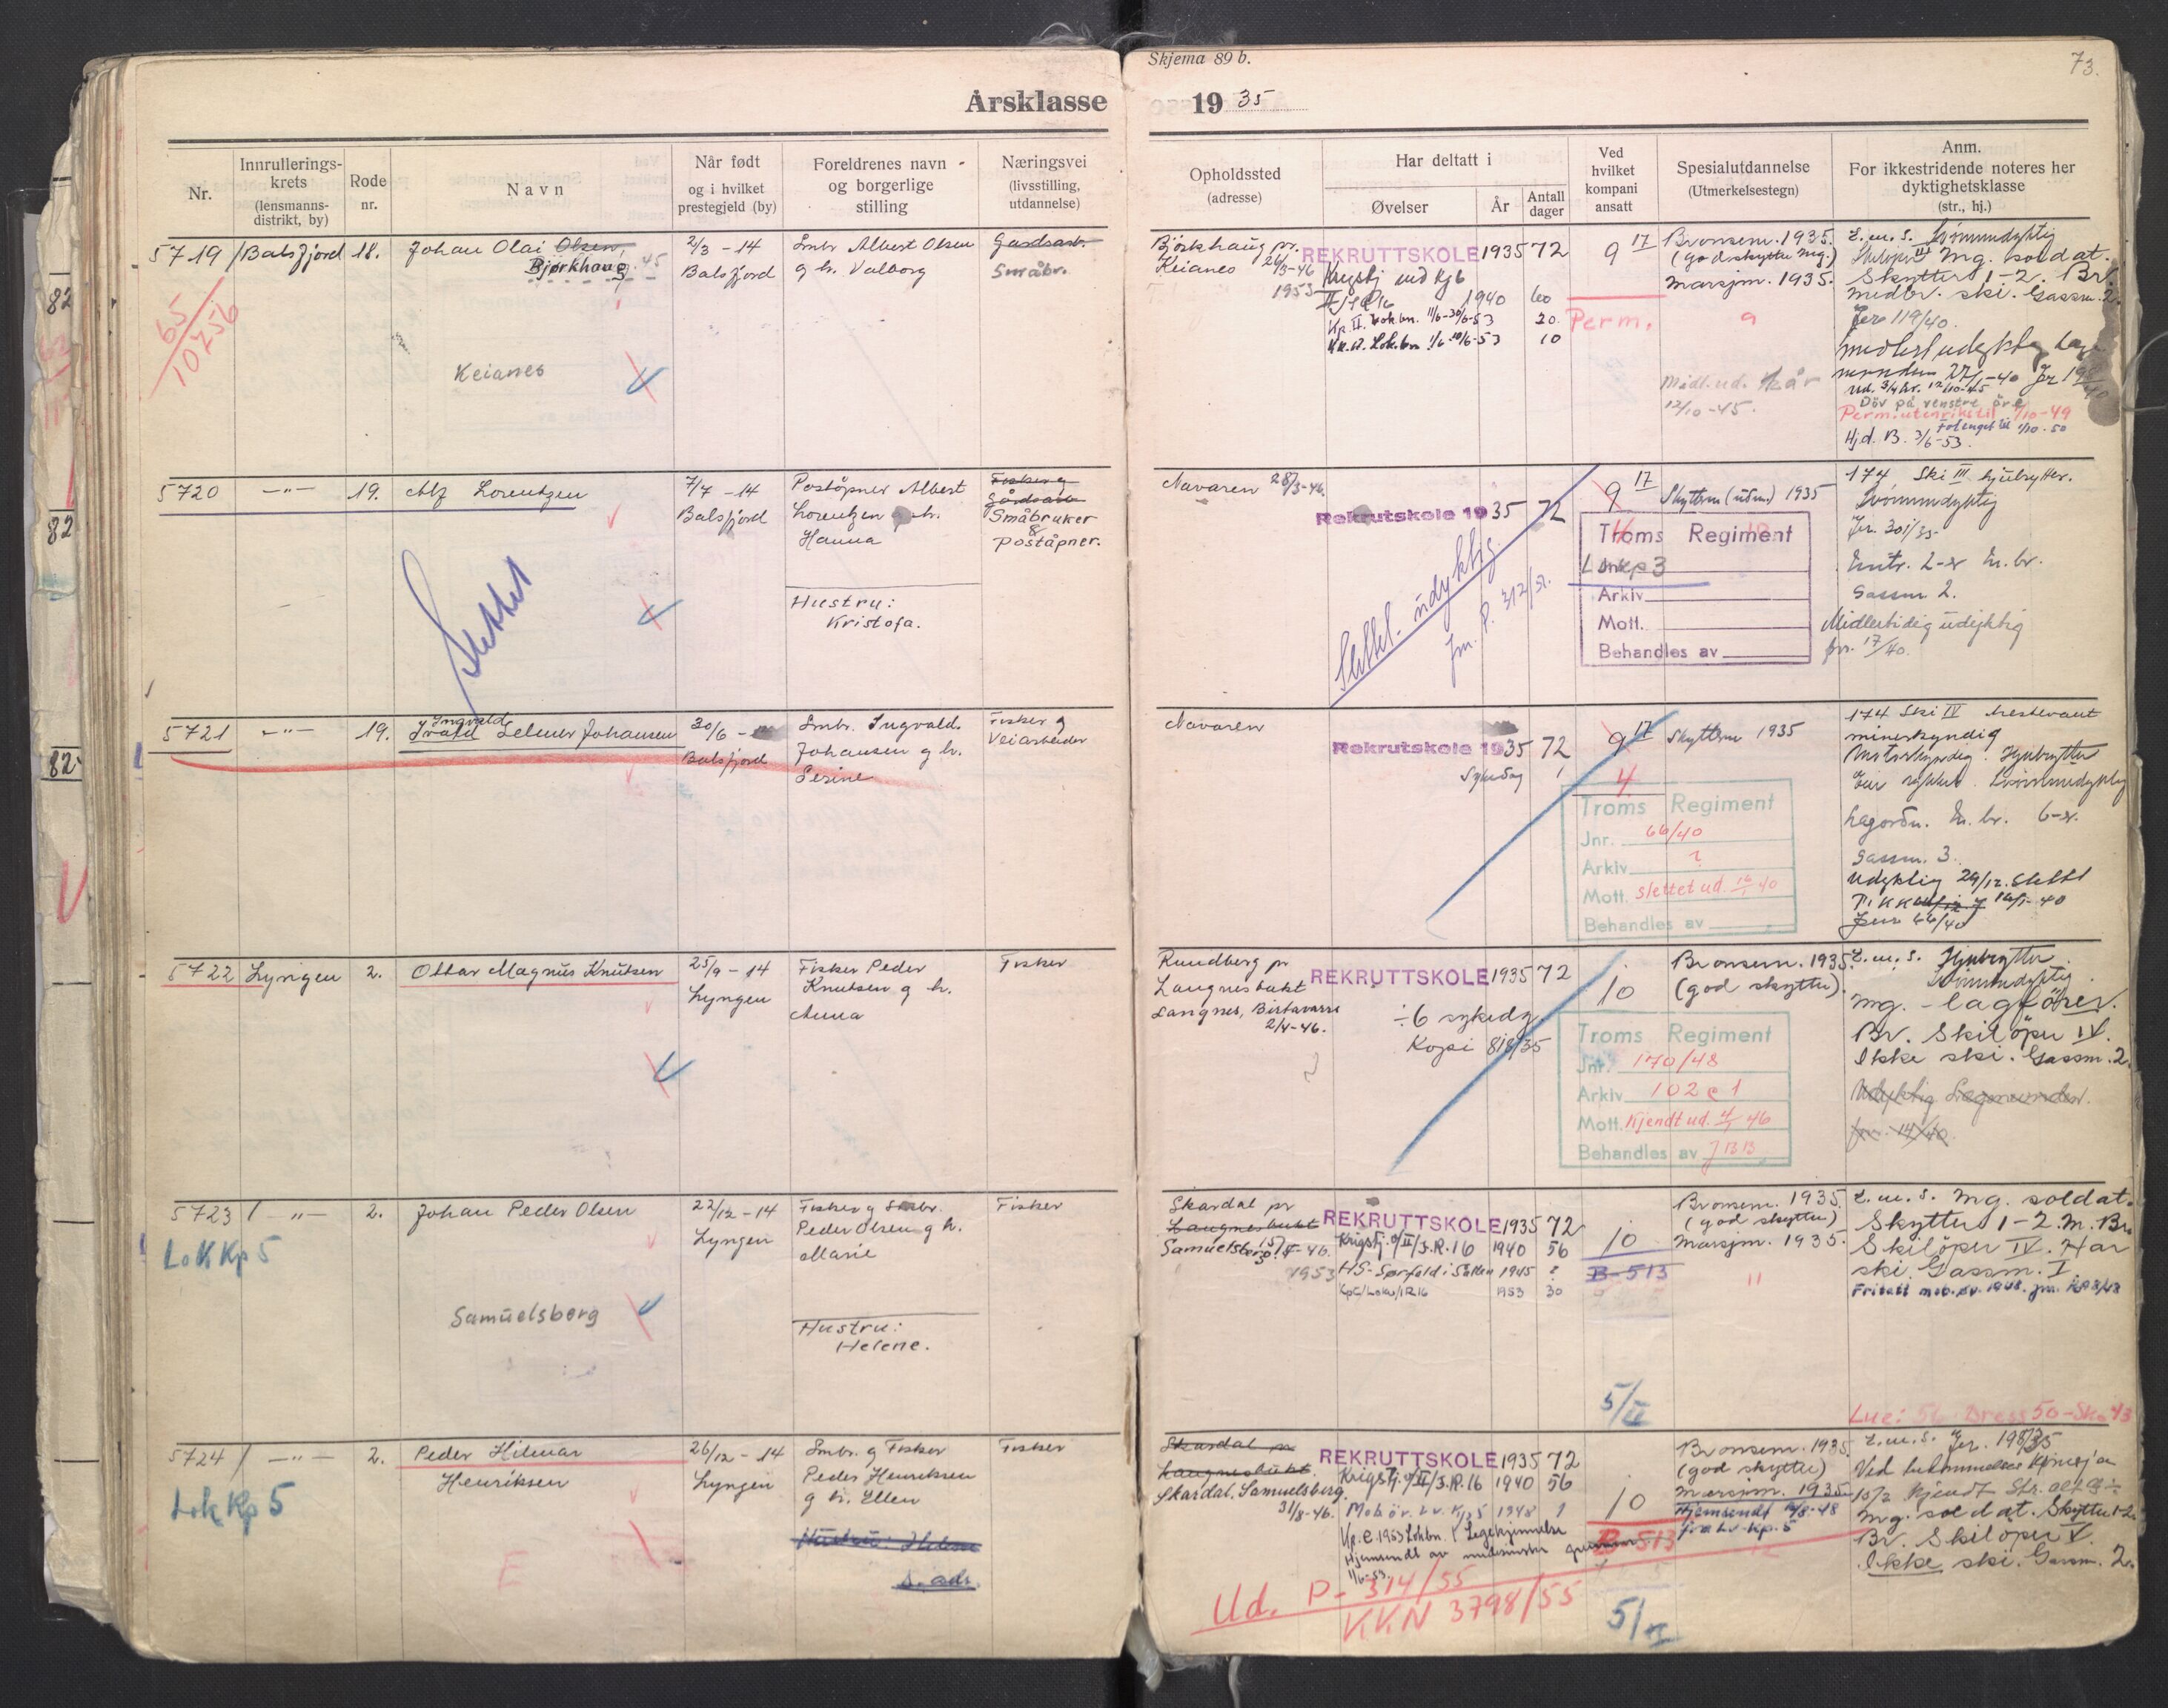 Skjema 89 b.
73.
Årsklasse 1935
Nr.
Innrullerings-
krets
(lensmanns-
distrikt, by)
Rode
nr.
Navn
Når født
og i hvilket
prestegjeld (by)
Foreldrenes navn
og borgerlige
stilling
Næringsvei
(livsstilling,
utdannelse)
Opholdssted
(adresse)
Har deltatt i
Øvelser
År
Antall
dager
Ved
hvilket
kompani
ansatt
Spesialutdannelse
(Utmerkelsestegn)
Anm.
For ikkestridende noteres her
dyktighetsklasse
(str., hj.)
5719 / Balsfjord 18. Johan Olai Olsen
Bjørkhaug 45
65
10256
Keianes
2/3 - 14
Balsfjord
Smbr Albert Olsen
g h. Valborg
Gårdsarb.
Småbr.
Bjørkhaug pr.
Keianes 26/3-46
1953
REKRUTTSKOLE 1935 72
Krigstj ved Kp6
1940 60
Kp. II. Lokbn. 11/6-30/6-53 20
1/6-10/6-53 10
9 17
Perm.
Bronsem. 1935.
(god skytter mg.)
Marsjm. 1935.
9
Midl. ud. 1/2 år
12/10-45.
L.m.s. Svømmedyktig
Skiløper III Mg. soldat.
Skytter 1-2. Br.
medbr. ski. Gassm. 2.
Jnr 119/40.
Midlert udyktig
Ud. 3/4 år. 12/10-45
Døv på venstre øre
Perm. utenriks til 1/10-49
Forlenget til 1/10-50
Hjd. B. 3/6-53.
5720 -"- 19. Alf Lorentzen
Slettet
7/7 - 14
Balsfjord
Poståpner Albert
Lorentzen g h.
Hanna
Hustru:
Kristofa.
Fisker g
gårdsarb.
Småbruker
&
poståpner.
Navaren 28/3-46.
Rekrutskole 1935 72
Slettet. udyktig
jnr. P. 312/52.
9 17
Troms Regiment
Lokkp 3
Arkiv
Mott.
Behandles av
Skytterm (udm.) 1935
174 Ski III hjulrytter.
Svømmedyktig
Jnr. 301/35
Gassm 2.
Midlertidig udyktig
jnr. 17/40.
5721 -"- 19. Ingvald
Selmer Johansen
30/6 -
Balsfjord
Smbr. Ingvald
Johansen g h.
Serine
Fisker g
Veiarbeider
Navaren
Rekrutskole 1935 72
Sykedag 1
9 17
4
Troms Regiment
Jnr. 66/40
Arkiv ?
Mott. slettet ud. 16/1 40
Behandles av
Skytterm 1935
174 Ski IV
minekyndig
Motorkyndig. Hjulrytter
Eier sykkel. Svømmedyktig
Gassm. 3.
Udyktig 29/12. Slettet
16/1-40
Jnr 66/40
5722 Lyngen 2. Ottar Magnus Knutsen
25/9 - 14
Lyngen
Fisker Peder
Knutsen g h.
Anna
Fisker
Rundberg pr
Langnesbukt
Langnes, Birtavarre
2/4-46.
REKRUTTSKOLE 1935 72
÷6 sykedg
Kopi 818/35
10
Troms Regiment
Jnr. 170/48
Arkiv 102 e 1
Mott. Kjendt ud. 4/1 46
Behandles av JBB
Bronsem. 1935.
(god skytter).
L.m.s. Hjulrytter
Svømmedyktig
mg. - lagfører.
Br. Skiløper IV.
Ikke ski. Gassm. 2.
Udyktig Lægenevnden.
jnr. 14/40.
5723 / -"- 2. Johan Peder Olsen
Lok Kp 5
Samuelsberg
22/12 - 14
Lyngen
Fisker g Smbr.
Peder Olsen g h.
Marie
Hustru:
Helene.
Fisker
Skardal pr
Langnesbukt
Samuelsberg 15/5-46.
1953
REKRUTTSKOLE 1935 72
Krigstj. v/II/I.R.16 1940 56
HS-Sørfold i Salten 1945 ?
1953 30
10
B-513
5/II
Bronsem. 1935.
(god skytter)
Marsjm. 1935.
11
L.m.s. Mg. soldat.
Skytter 1-2. M. Br.
Skiløper IV. Har
ski. Gassm. I.
Fritatt mob.øv. 1948.
Lue: 56 Dress 50-Sko 43
5724 / -"- 2. Peder Hilmar
Henriksen
Lok Kp 5
E
26/12 - 14
Lyngen
Smbr. g Fisker
Peder Henriksen
g h. Ellen
Hustru: Helene
s. adr.
Fisker
Skardal pr
Langnesbukt.
Skardal, Samuelsberg.
31/8-46.
REKRUTTSKOLE 1935 72
Krigstj. v/II/I.R.16 1940 56
Mob.øv. 1948 1
Kp. E. 1953 Lokbn. Legekjennelse
Hjemsendt av medisinske grunner
11/6-53.
Ud. P- 314/55
KKN 3798/55
10
B-513
5/II
Bronsem. 1935
(god skytter)
Marsjm. 1935
Hjemsendt
fra Lv-kp. 5
12
L.m.s. Jnr. 198/35
Mg. soldat. Skytter 1-2.
Br. Skiløper V.
Ikke ski. Gassm. 2.
82
82
82